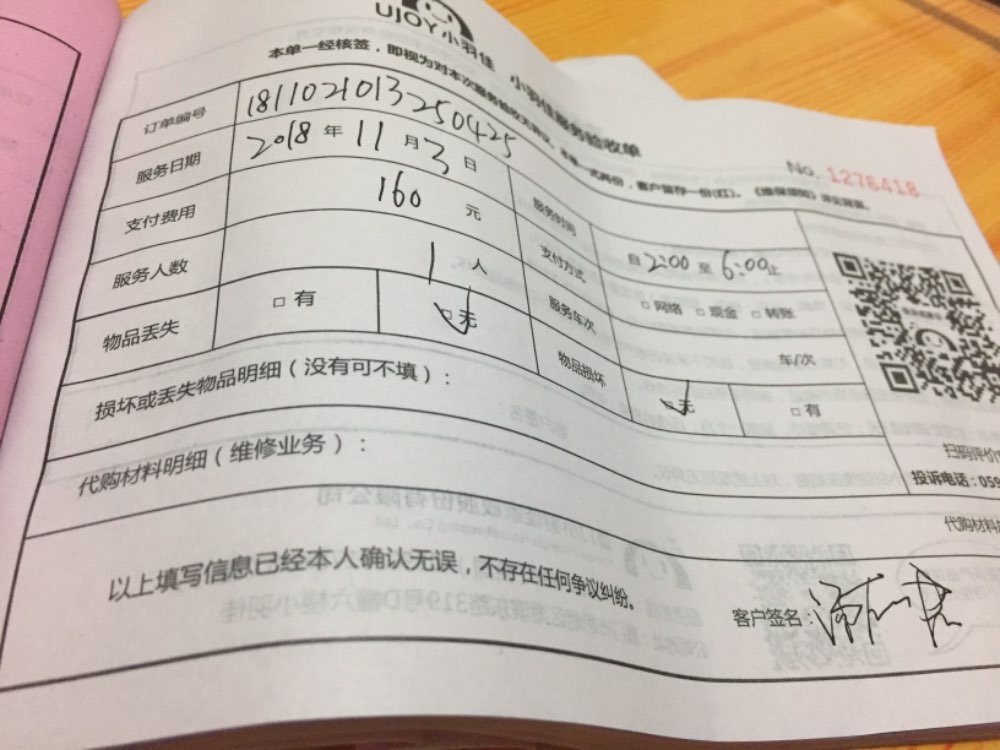 UJOY小羽佳 小羽佳服务验收单
本单一经核签，即视为对本次服务验收无异议。本单一式两份，客户留存一份(红)。《维保须知》详见背面。
No. 1276418
订单编号 1811021013250425
服务日期 2018年11月3日 服务时间 自2:00至6:00止
支付费用 160元 支付方式 □网络 □现金 □转账
服务人数 1人 服务车次 车/次
物品丢失 □有 □无 物品损坏 □无 □有
损坏或丢失物品明细（没有可不填）：
扫码评价
投诉电话：059
代购材料明细（维修业务）：
代购材料
以上填写信息已经本人确认无误，不存在任何争议纠纷。
客户签名：